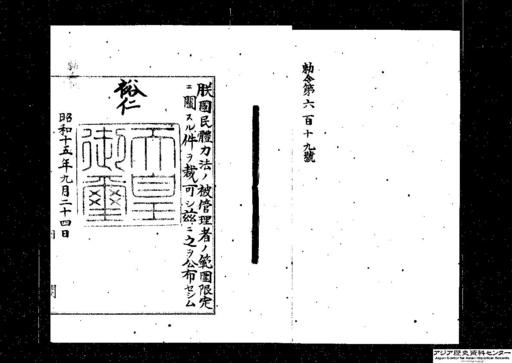 勅令第六百十九號
朕國民體力法ノ被管理者ノ範圍限定
ニ關スル件ヲ裁可シ玆ニ之ヲ公布セシム
裕仁
天皇御璽
昭和十五年九月二十四日
アジア歴史資料センター
Japan Center for Asian Historical Records